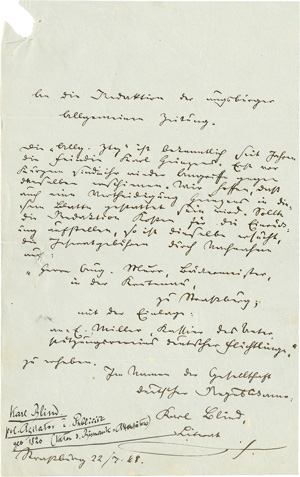 An die Redaktion der Augsburger
Allgemeinen Zeitung.
Die „Allg. Ztg" ist bekanntlich seit Jahren
die Feindin Karl Heinzens. Erst vor
Kurzem sind wieder Angriffe gegen
denselben erschienen. Wir hoffen, daß
auch eine Vertheidigung Heinzens in die-
sem Blatte gestattet sein wird. Sollte
die Redaktion Kosten für die Einrük-
ung aufstellen, so ist dieselbe ersucht,
die Inseratgebühren durch Nachnahme
auf:
„Herrn Aug. Murr, Bäckermeister,
in der
zu Straßburg;
mit der Einlage:
an E. Miller, Kassier des Unter-
stützungsvereins deutscher Flüchtlinge,"
zu erheben.
Im Namen der Gesellschaft
deutscher Republikaner.
Karl Blind,
Literat
Karl Blind
pol. Agitator u. Publizist
geb 1820 (Vater d. Bismarck-Attentäters)
Straßburg 22/7. 48.